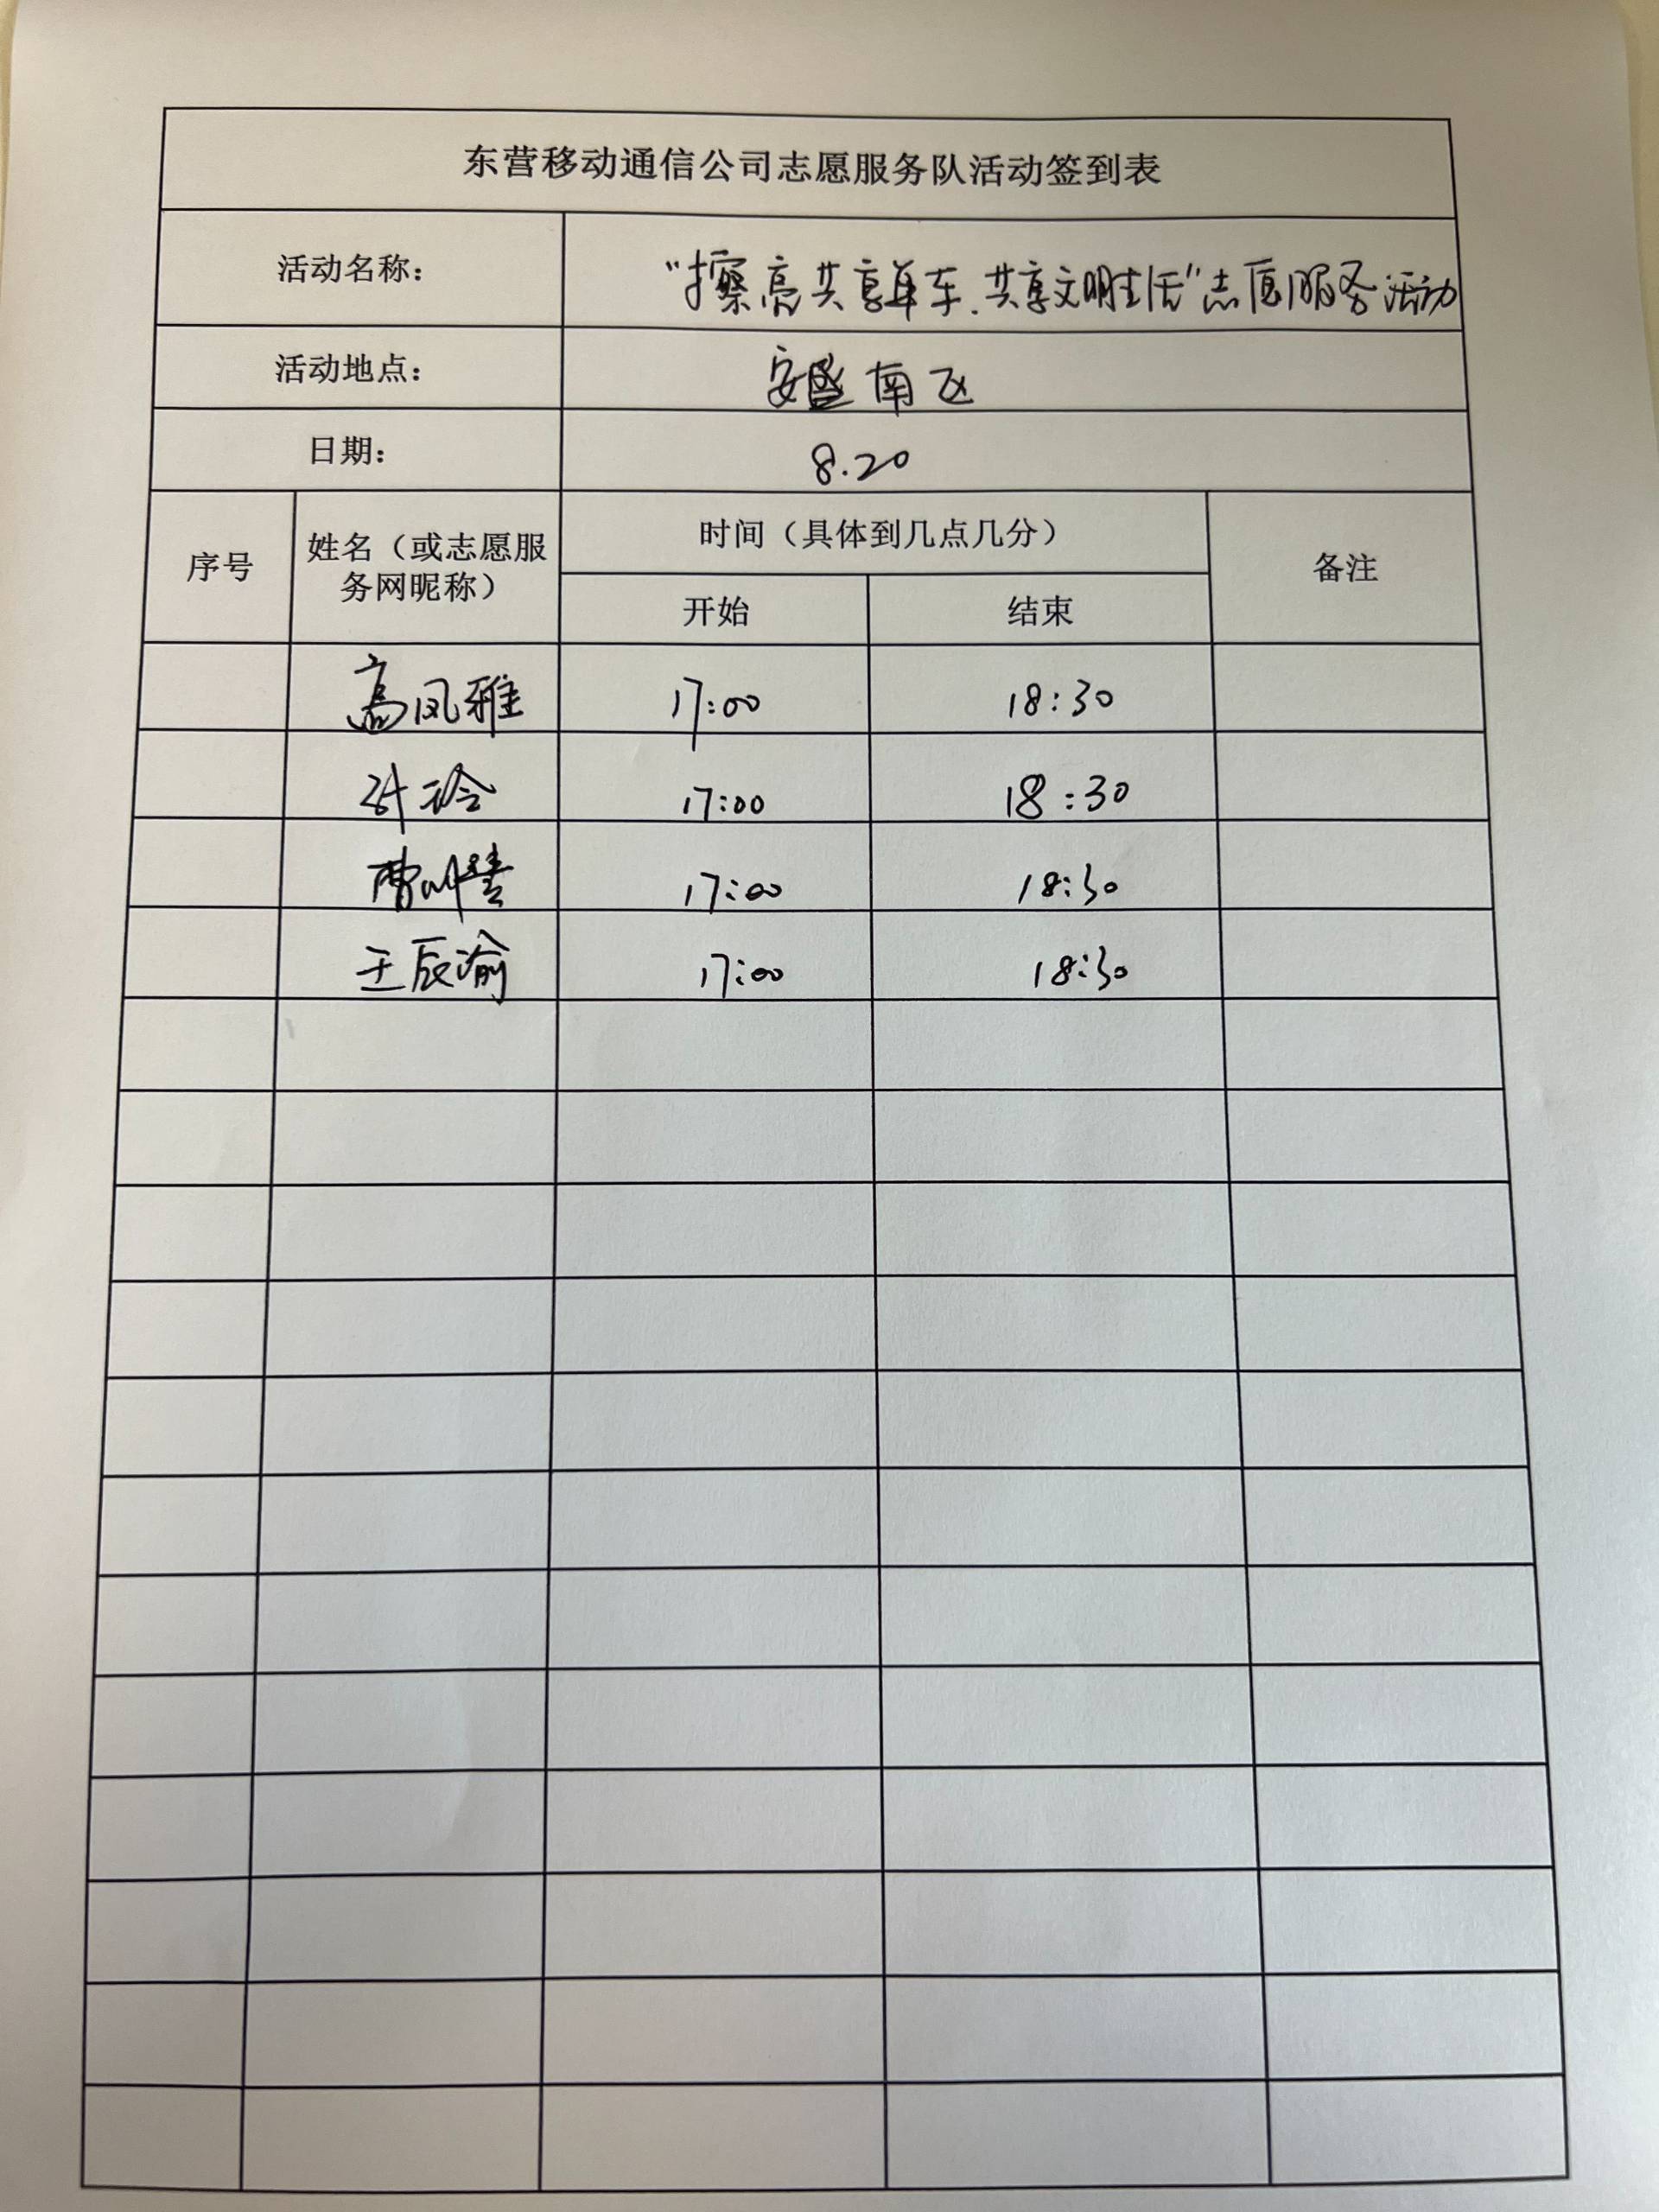 东营移动通信公司志愿服务队活动签到表
活动名称： “擦亮共享单车.共享文明生活”志愿服务活动
活动地点： 安盛南区
日期： 8.20
序号 姓名（或志愿服务网昵称） 时间（具体到几点几分） 备注
开始 结束
高凤雅 17:00 18:30
17:00 18:30
17:00 18:30
王辰渝 17:00 18:30